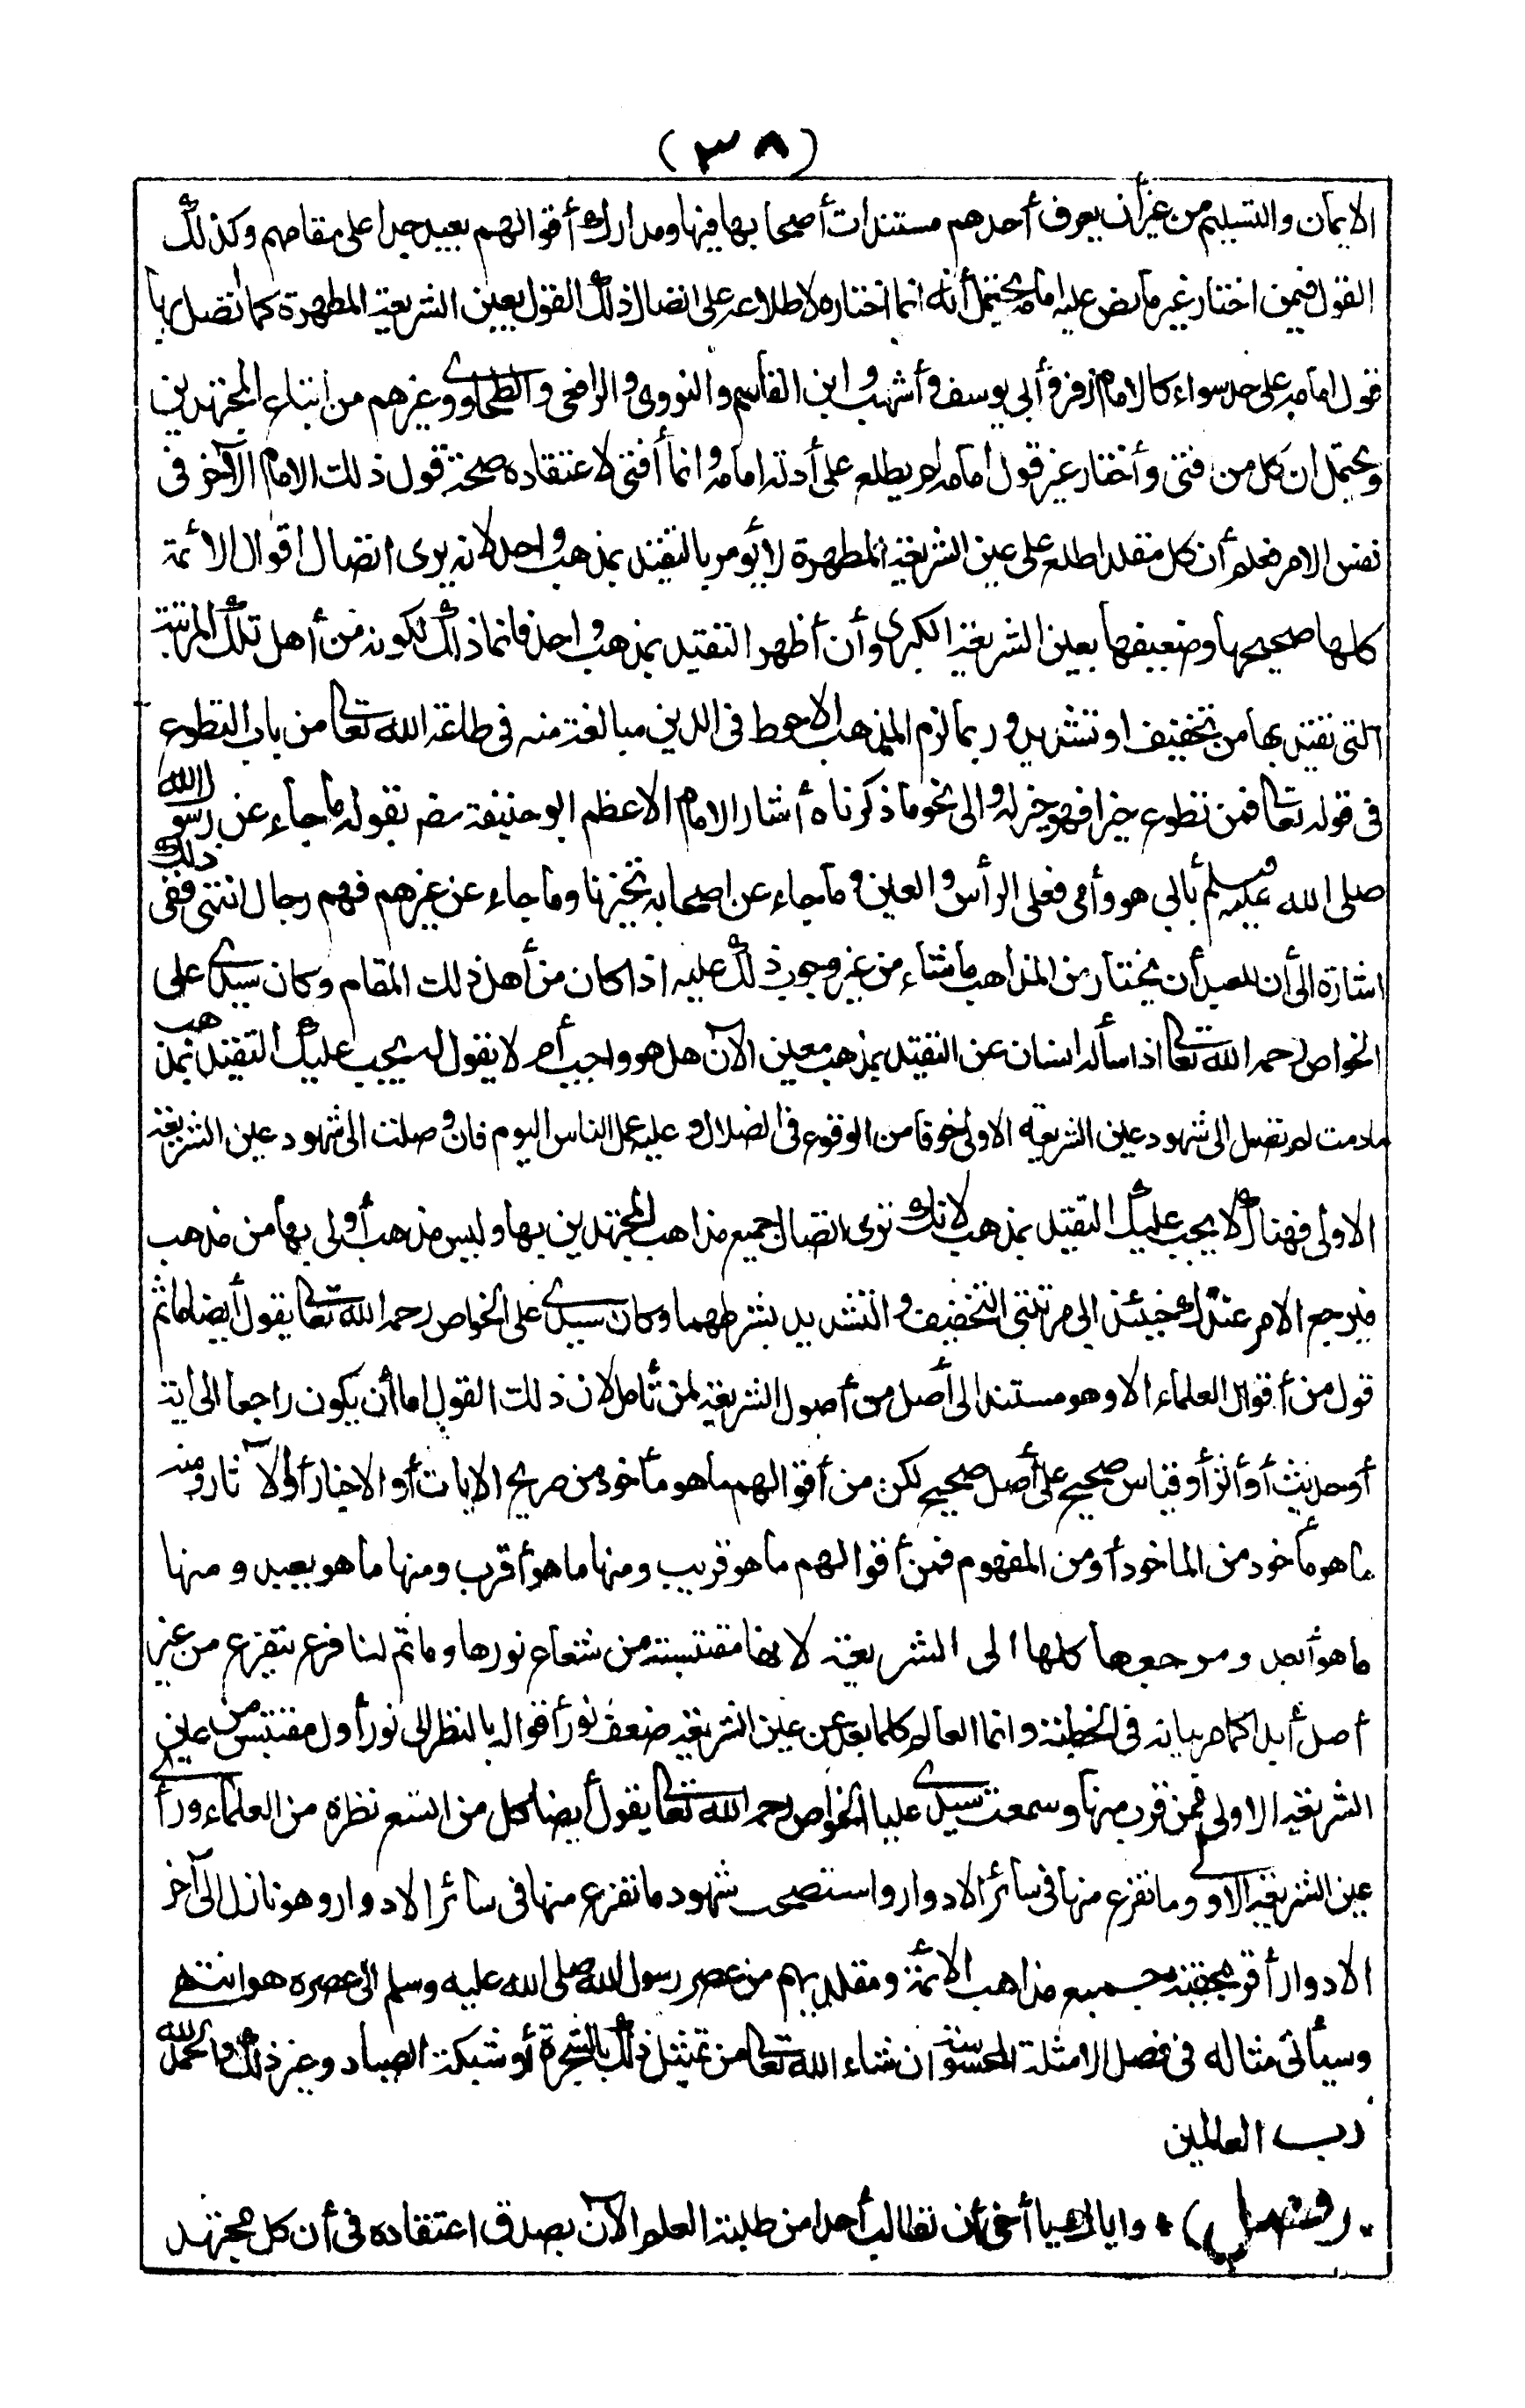 (٣٨)
الايمان والتسليم من غير أن يعرف أحدهم مستندات أصحابها فيها ومدارك أقوالهم بعيد جدا على مقامهم وكذلك
القول فيمن اختار غير ما نص عليه امامه يحتمل أنه انما اختاره لاطلاعه على اتصال ذلك القول بعين الشريعة المطهرة كما اتصل بها
قول امامه على حد سواء كالامام زفر وأبي يوسف وأشهب وابن القاسم والنووى والرافعى والطحاوى وغيرهم من اتباع المجتهدين
ويحتمل ان كل من افتى وأختار غير قول امامه لم يطلع على أدلة امامه وانما أفتى لاعتقاده صحة قول ذلك الامام الآخر فى
نفس الامر فعلم أن كل مقلد اطلع على عين الشريعة المطهرة لا يؤمر بالتقيد بمذهب واحد لانه يرى اتصال اقوال الائمة
كلها صحيحها وضعيفها بعين الشريعة الكبرى وأن أظهر التقيد بمذهب واحد فانما ذلك لكونه من أهل تلك المرتبة
التى تقيد بها من تخفيف او تشديد وربما لزم المذهب الاحوط فى الدين مبالغة منه فى طاعة الله تعالى من باب التطوع
فى قوله تعالى فمن تطوع خيرا فهو خير له والى نحو ما ذكرناه أشار الامام الاعظم ابو حنيفة رضه بقوله ما جاء عن رسول الله
صلى الله عليه وسلم بأبي هو وأمى فعلى الرأس والعين وما جاء عن اصحابه تخيرنا وما جاء عن غيرهم فهم رجال انتهى ففى ذلك
اشارة الى أن للعبد أن يختار من المذاهب ما شاء من غير وجوب ذلك عليه اذا كان من أهل ذلك المقام وكان سيدى على
الخواص رحمه الله تعالى اذا سأله انسان عن التقيد بمذهب معين الآن هل هو واجب أم لا يقول له يجب عليك التقيد بمذهب
مادمت لم تصل الى شهود عين الشريعة الاولى خوفا من الوقوع فى الضلال وعليه عمل الناس اليوم فان وصلت الى شهود عين الشريعة
الاولى فهناك لا يجب عليك التقيد بمذهب لانك ترى اتصال جميع مذاهب المجتهدين بها وليس مذهب أولى بها من مذهب
فيرجع الامر عندك حينئذ الى مرتبتى التخفيف والتشديد بشرطهما وكان سيدى على الخواص رحمه الله تعالى يقول أيضا ما ثم
قول من أقوال العلماء الا وهو مستند الى أصل من أصول الشريعة لمن تأمل لان ذلك القول اما أن يكون راجعا الى اية
أو حديث أو أثر أو قياس صحيح على أصل صحيح لكن من أقوالهم ما هو مأخوذ من صريح الايات أو الاخبار أو الآثار ومنه
ما هو مأخوذ من الماخوذ أو من المفهوم فمن أقوالهم ما هو قريب ومنها ما هو أقرب ومنها ما هو بعيد ومنها
ما هو أبعد ومرجعها كلها الى الشريعة لانها مقتبسة من شعاع نورها وما ثم لنا فرع يتفرع من غير
أصل أبدا كما مر بيانه فى الخطبة وانما العالم كلما بعد عن عين الشريعة ضعف نور أقواله بالنظر الى نور أول مقتبس من عين
الشريعة الاولى ممن قرب منها وسمعت سيدى عليا الخواص رحمه الله تعالى يقول أيضا كل من اتسع نظره من العلماء ورأى
عين الشريعة الاولى وما تفرع منها فى سائر الادوار واستصحب شهود ما تفرع منها فى سائر الادوار وهو نازل الى آخر
الادوار أقر بحقية جميع مذاهب الائمة ومقلديهم من عصر رسول الله صلى الله عليه وسلم الى عصره هو انتهى
وسيأتى مثاله فى فصل الامثلة المحسوسة ان شاء الله تعالى من تمثيل ذلك بالشجرة أو شبكة الصياد وغير ذلك والحمد لله
رب العالمين
* (فصل) * واياك يا أخى أن تطالب أحدا من طلبة العلم الآن بصدق اعتقاده فى أن كل مجتهد